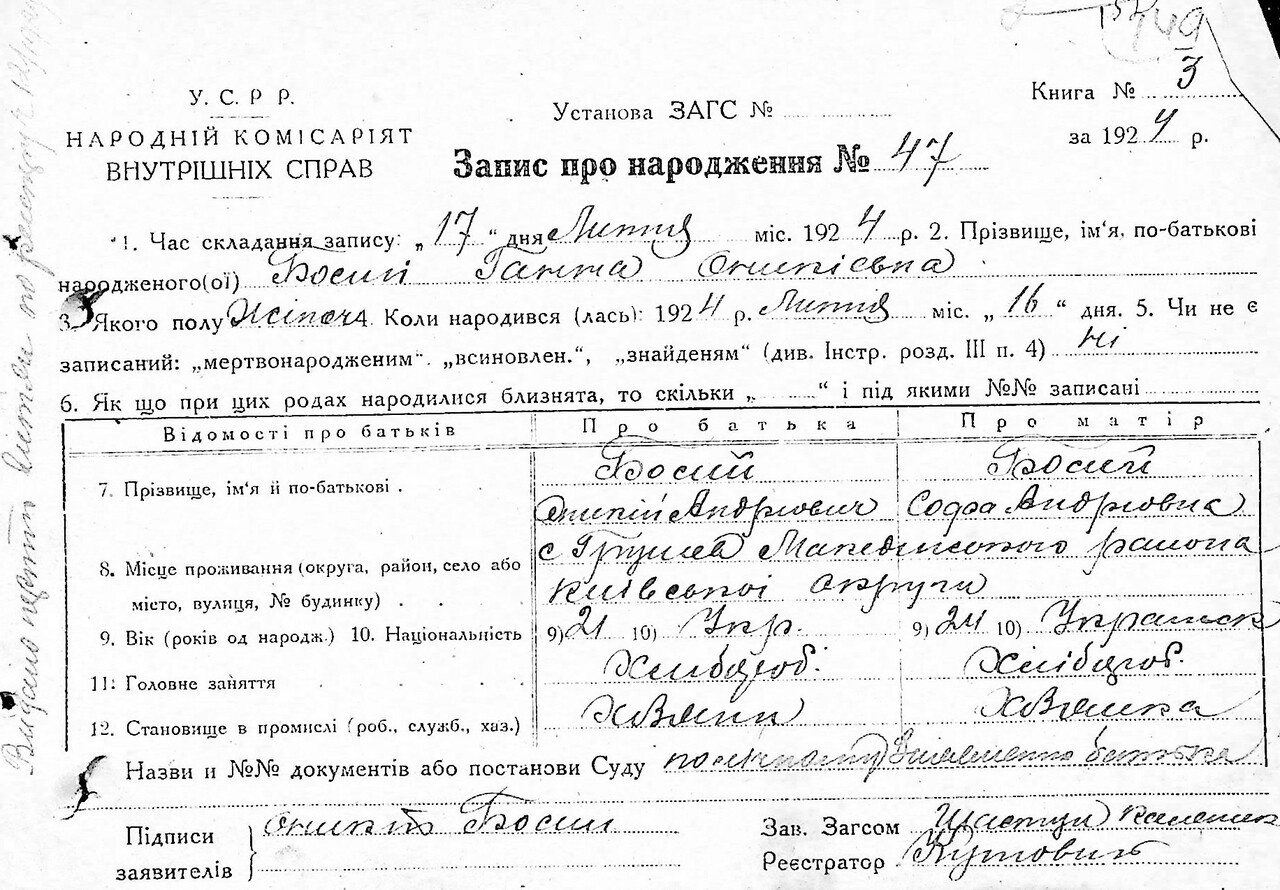 149
У. С. Р Р.
НАРОДНІЙ КОМІСАРІЯТ
ВНУТРІШНІХ СПРАВ
Установа ЗАГС №
Запис про народження № 47
Книга № 3
за 1924 р.
1. Час складання запису: „ 17 “ дня Липня міс. 1924 р. 2. Прізвище, ім‘я, по-батькові
народженого(ої) Босий Ганна Оникіевна
3. Якого полу Жіноч 4. Коли народився (лась): 1924 р. Липня міс. „ 16 “ дня. 5. Чи не є
записаний: „мертвонародженим“. „всиновлен.“, „знайденям“ (див. Інстр. розд. III п. 4) ні
6. Як що при цих родах народилися близнята, то скільки „ “ і під якими №№ записані
Відомості про батьків Про батька Про матір
7. Прізвище, ім‘я й по-батькові . Босий Босий
Оникій Андріович Софія Андріовна
8. Місце проживання (округа, район, село або с Грушев района
місто, вулиця, № будинку) . . Київської округи
9. Вік (років од народж.) 10. Національність 9) 21 10) Укр. 9) 24 10) Украинск
11. Головне заняття Хлібороб. Хлібороб.
12. Становище в промислі (роб., служб., хаз.) Хазяин Хазяика
Назви и №№ документів або постанови Суду батька
Підписи Оникій Босий
заявителів
Зав. Загсом
Реєстратор Кутовий
Видано